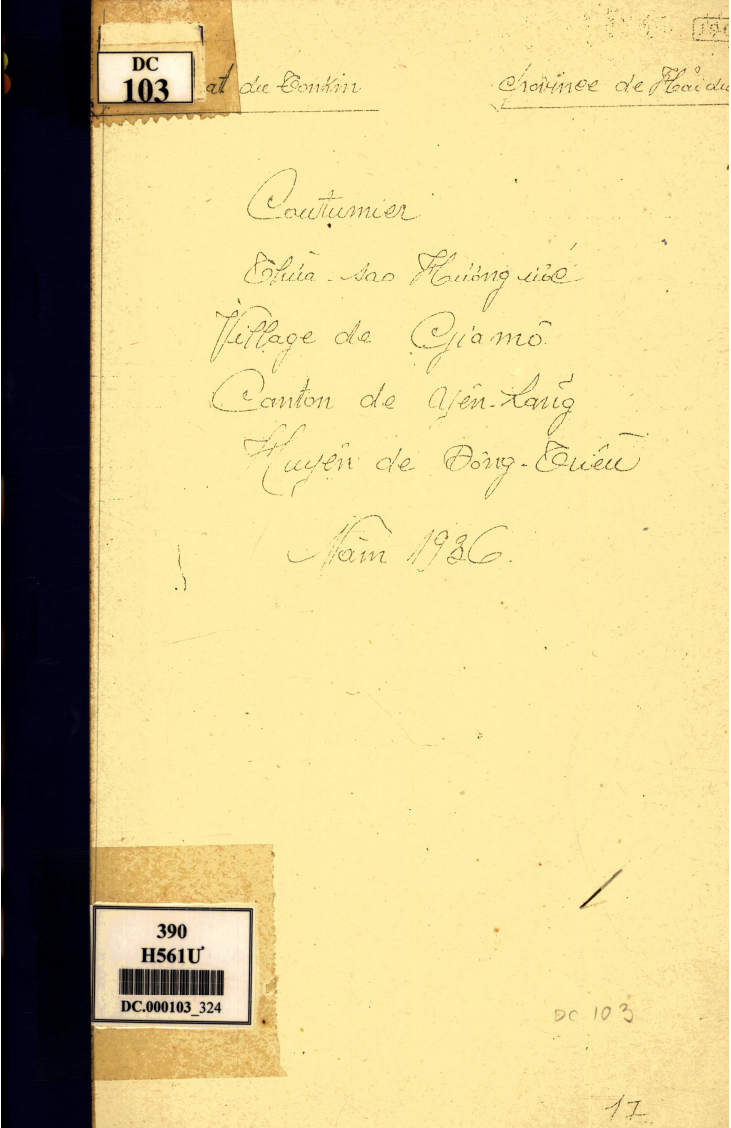 DC
103
at du Tonkin
Province de Hải dư
Coutumier
Thừa-sao Hương ước
Village de Giamô
Canton de Yên-Lãng
Huyện de Đông-Triều
Năm 1936.
390
H561Ư
DC.000103_324
DC 103
17